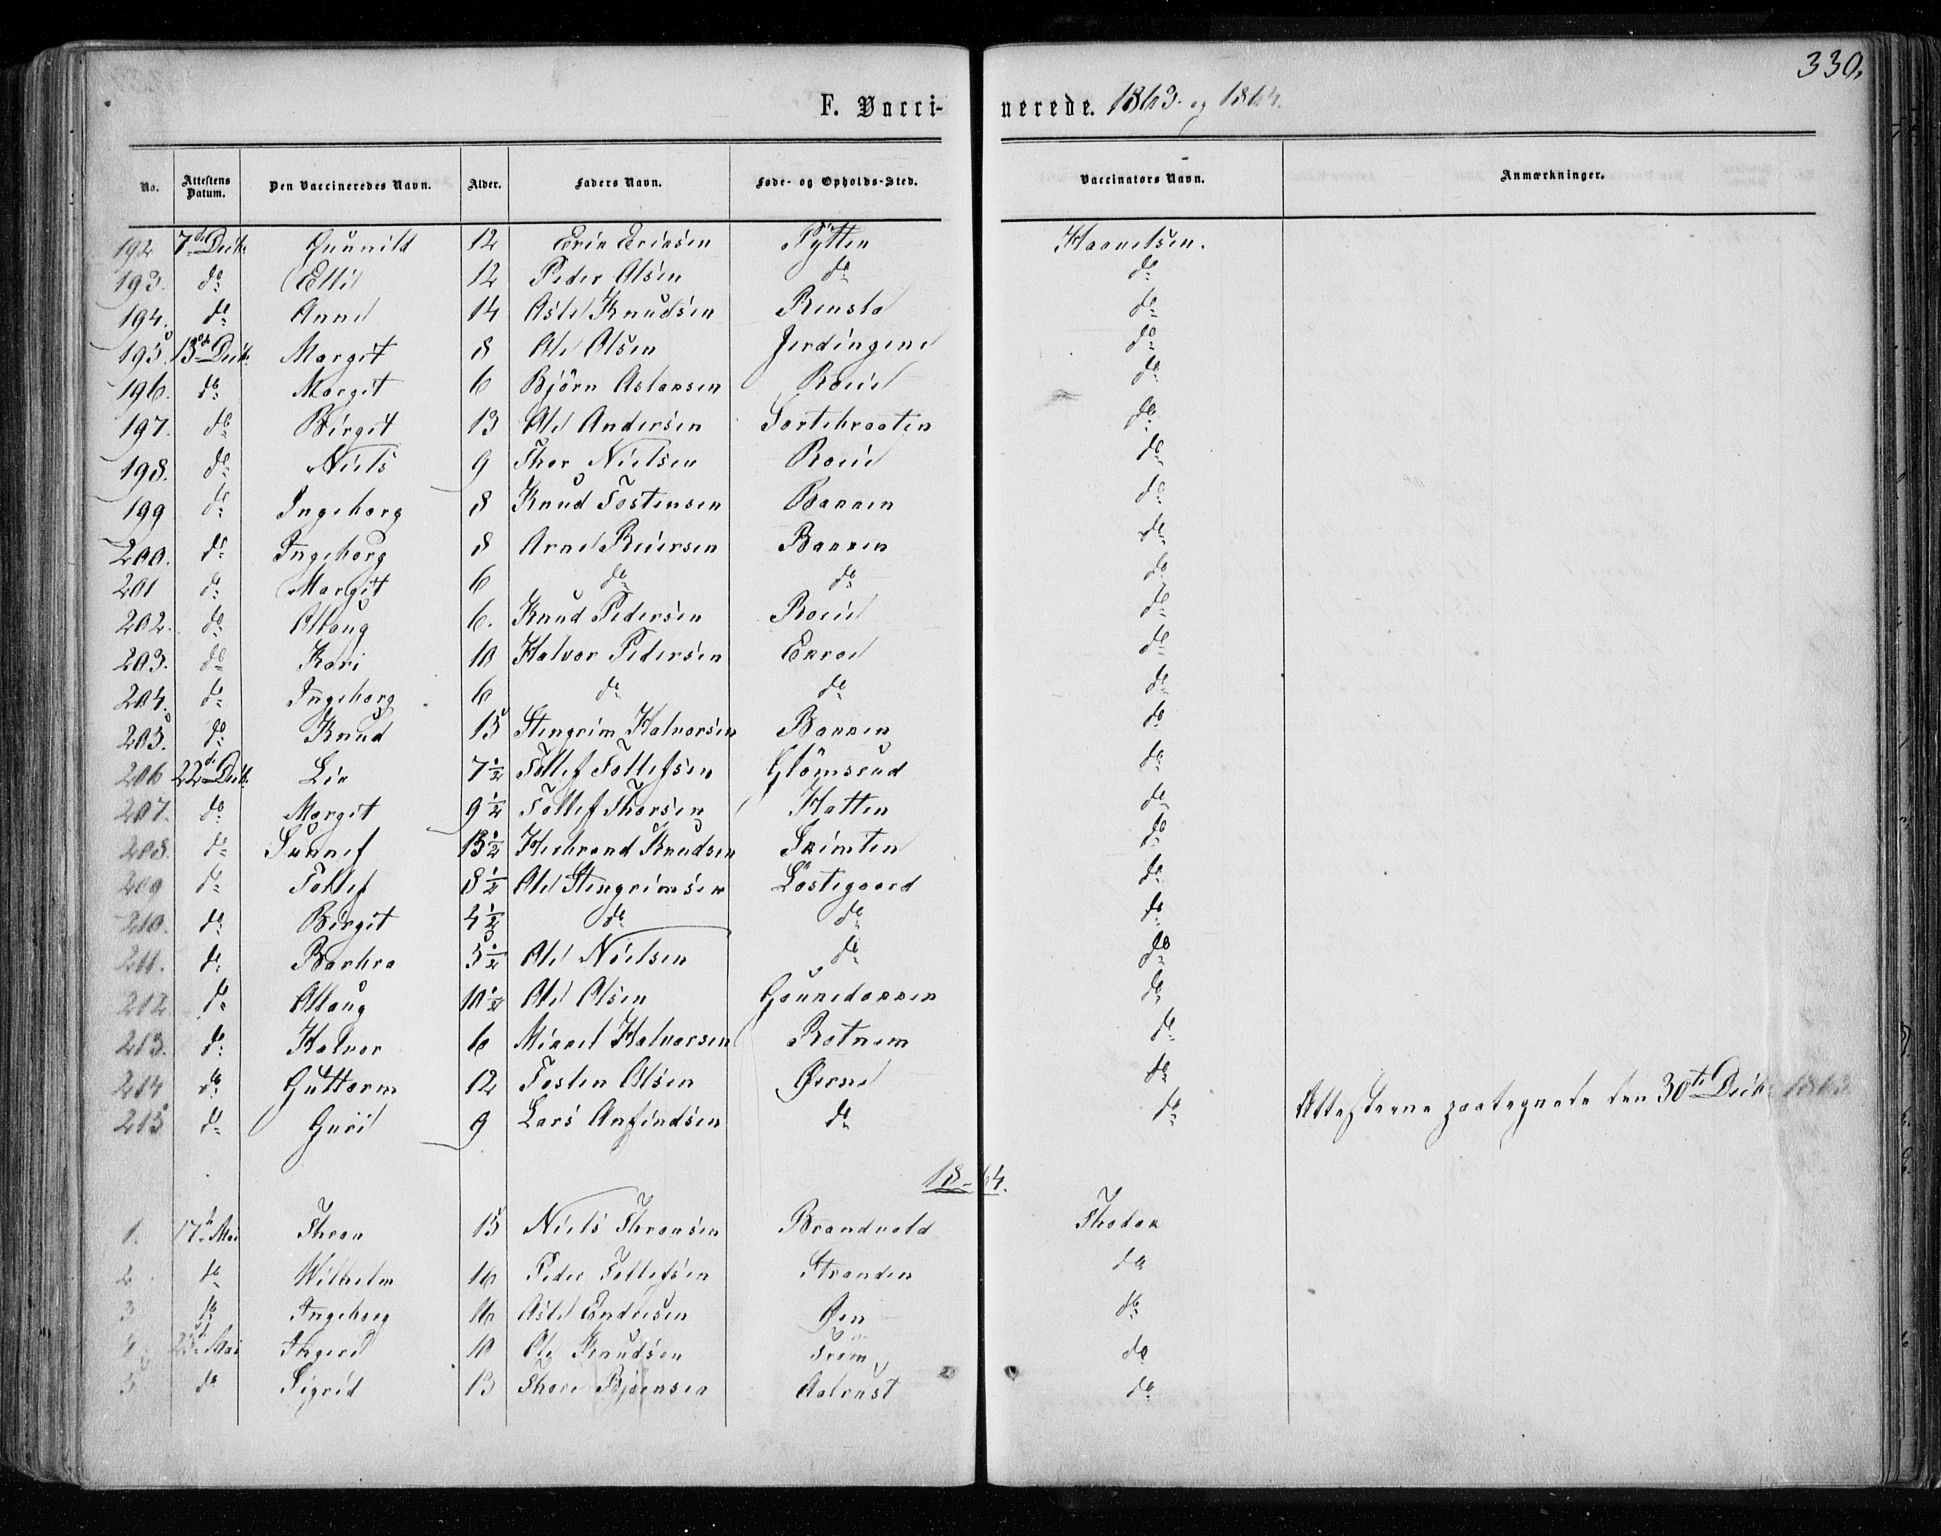 330.
F. Vacci- nerede. 1863. og 1864.
No. Attestens Datum. Den Vaccineredes Navn. Alder. Faders Navn. Føde- og Opholds-Sted. Vaccinators Navn. Anmærkninger.
192 7de Decbr. Gunnild 12 Erik Eriksen Pytten
193. do Elli 12 Peder Olsen do do
194. do Anne 14 Asle Knudsen do
195. 13de Decbr. Margit 8 Ole Olsen Jerdingene do
196. do Margit 6 Bjørn Aslaksen Roiie do
197. do Birgit 13 Ole Andersen Sortebraaten do
198. do Niels 9 Thor Nielsen Roiie do
199 do Ingeborg 8 Knud Tostensen Bakken do
200. do Ingeborg 8 Arne Reiersen Bakken do
201 do Margit 6 do do do
202. do Allaug 6. Knud Pedersen Roiie do
203. do Kari 10 Halvor Pedersen Ekroe do
204. do Ingeborg 6 do do do
205. do Knud 15 Stengrim Halvorsen Bakken do
206 22de Decbr. Liv 7½ Tollef Tollefsen Glömsrud do
207. do Margit 9½ Tollef Thorsen Hatten do
208. do Sunnef 13½ Herbrand Knudsen Skimten do
209 do Tollef 8½ Ole Stengrimsen Löstegaard do
210. do Birgit 4½ do do do
211. do Barbra 5½ Ole Nielsen do do
212 do Allaug 10½ Ole Olsen do
213. do Halvor 6 Mikkel Halvorsen Rotnem do
214 do Guttorm 12 Tosten Olsen Øerne do
215 do Guri 9 Lars Anfindsen do do Attesterne paategnede den 30te Decbr. 1863.
1864.
1. 17de Mai Thron 15 Niels Thronsen Brandvold
2 do Wilhelm 16 Peder Tollefsen Stranden do
3 do Ingeborg 16 Asle Endresen Øen do
4 Mai 10 Ole Knudsen do
5 do Sigrid 13 Thore do